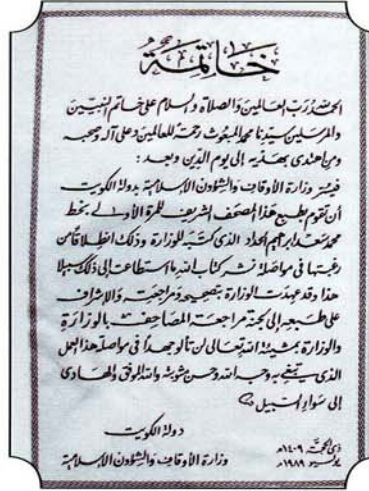 خاتمة
الحمد لله رب العالمين والصلاة والسلام على خاتم النبيين
والمرسلين سيدنا محمد المبعوث رحمة للعالمين وعلى آله وصحبه
ومن اهتدى بهديه إلى يوم الدين وبعد :
فيسر وزارة الأوقاف والشؤون الإسلامية بدولة الكويت
أن تقوم بطبع هذا المصحف الشريف للمرة الأولى بخط
محمد سعد ابراهيم الحداد الذي كتبه للوزارة وذلك انطلاقًا من
رغبتها في مواصلة نشر كتاب الله ما استطاعت إلى ذلك سبيلا
هذا وقد عهدت الوزارة بتصحيحه ومراجعته والإشراف
على طبعه إلى لجنة مراجعة المصاحف بالوزارة
والوزارة بمشيئة الله تعالى لن تألو جهدًا في مواصلة هذا العمل
الذي يبتغى به وجه الله وحسن مثوبته والله الموفق والهادي
إلى سواء السبيل
دولة الكويت
وزارة الأوقاف والشؤون الإسلامية
ذي الحجة ١٤٠٩هـ
يوليو ١٩٨٩م